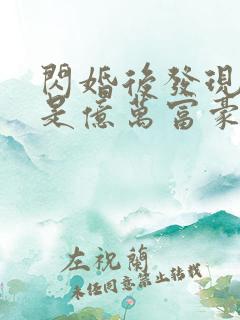 閃婚後發現
是億萬富豪
左祝蘭
未經同意禁止轉載